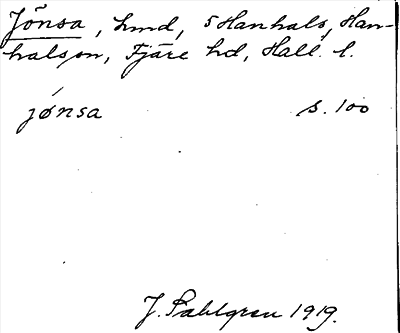 Jönsa, hmd, 5 Hanhals, Han-
halssn, Fjäre hd, Hall. l.
jǿnsa s. 100
J. Sahlgren 1919.